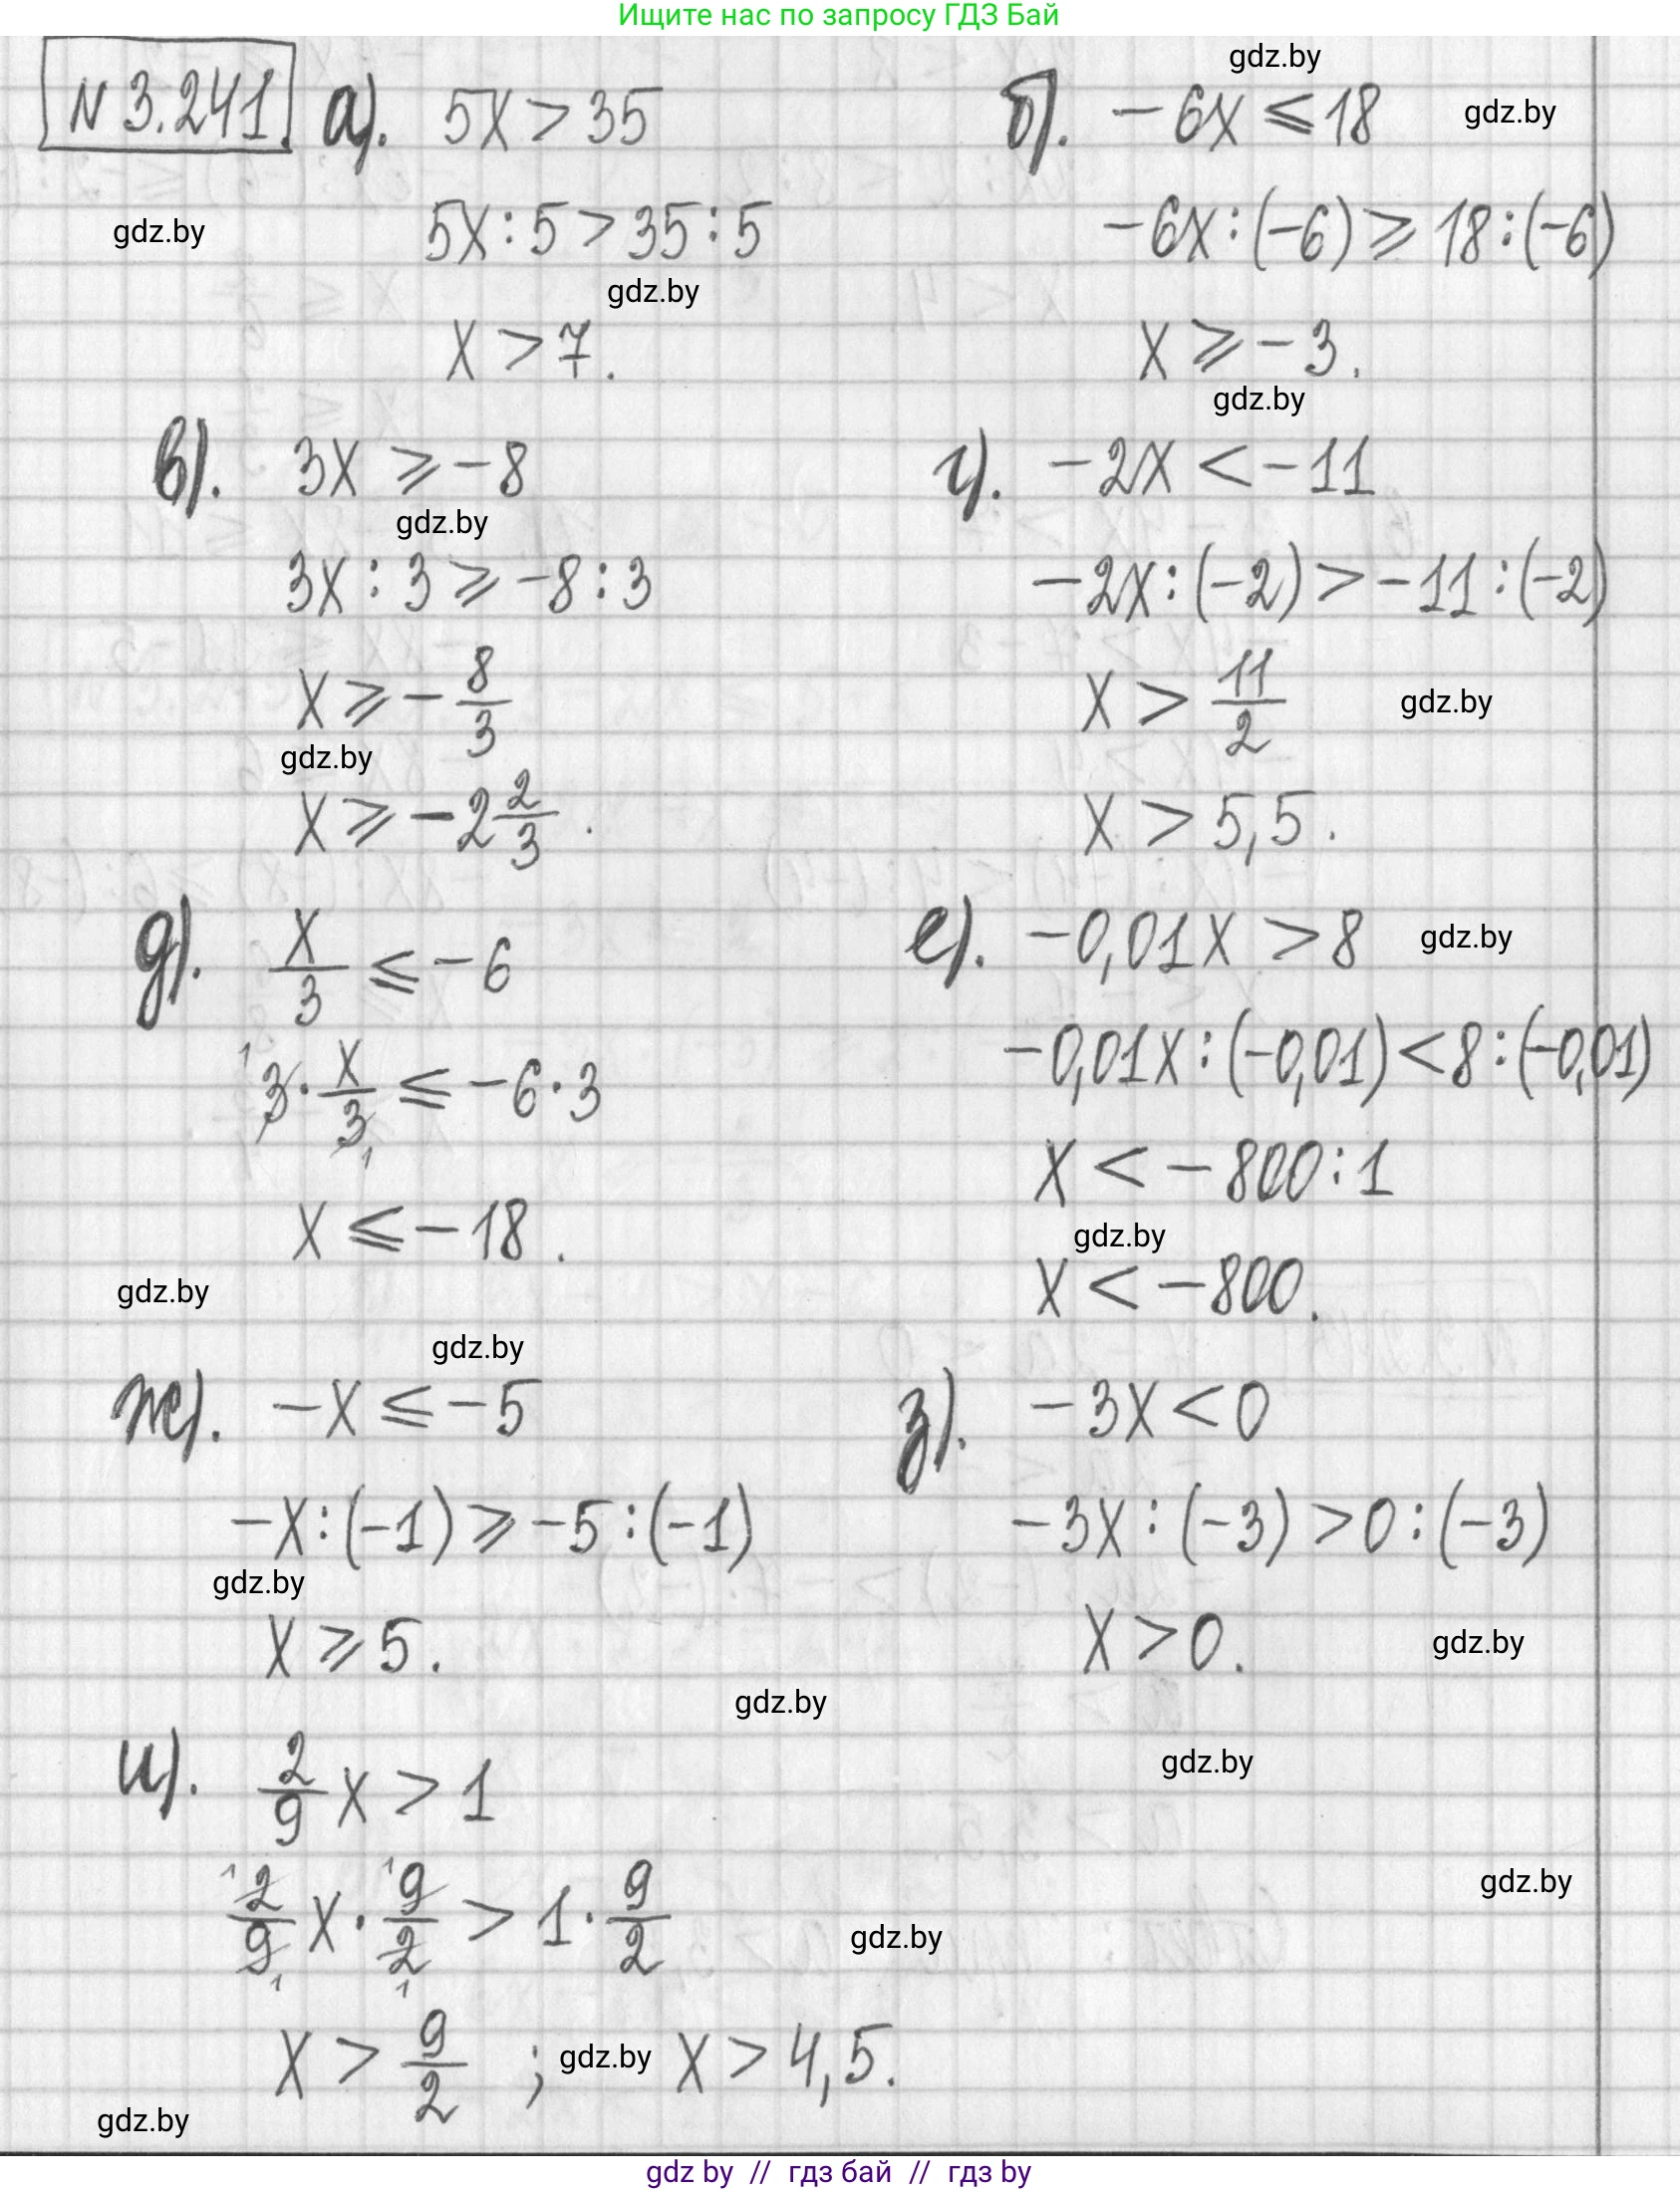 Ищите нас по запросу ГДЗ Бай
gdz.by
N 3.241. а). 5x > 35
б). -6x ⩽ 18 gdz.by
gdz.by 5x : 5 > 35 : 5
-6x : (-6) ⩾ 18 : (-6)
gdz.by
x > 7.
x ⩾ -3.
gdz.by
в). 3x ⩾ -8
г). -2x < -11
gdz.by
3x : 3 ⩾ -8 : 3
-2x : (-2) > -11 : (-2)
x ⩾ -8/3
x > 11/2 gdz.by
gdz.by
x ⩾ -2 2/3.
x > 5,5.
д). x/3 ⩽ -6
е). -0,01x > 8 gdz.by
3 · x/3 ⩽ -6 · 3
-0,01x : (-0,01) < 8 : (-0,01)
x < -800 : 1
x ⩽ -18.
gdz.by
gdz.by
x < -800.
gdz.by
ж). -x ⩽ -5
з). -3x < 0
-x : (-1) ⩾ -5 : (-1)
-3x : (-3) > 0 : (-3)
gdz.by
x ⩾ 5.
x > 0. gdz.by
gdz.by
gdz.by
и). 2/9 x > 1
gdz.by
2/9 x · 9/2 > 1 · 9/2
gdz.by
x > 9/2 ; gdz.by x > 4,5.
gdz.by
gdz by // гдз бай // гдз by